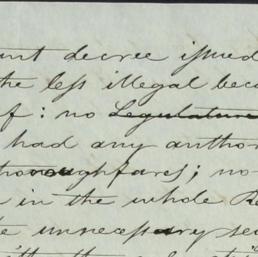 ant decree issued
the less illegal beca
f: no Legislature
had any author
thoroughfares; no
in the whole Re
e unnecessary se